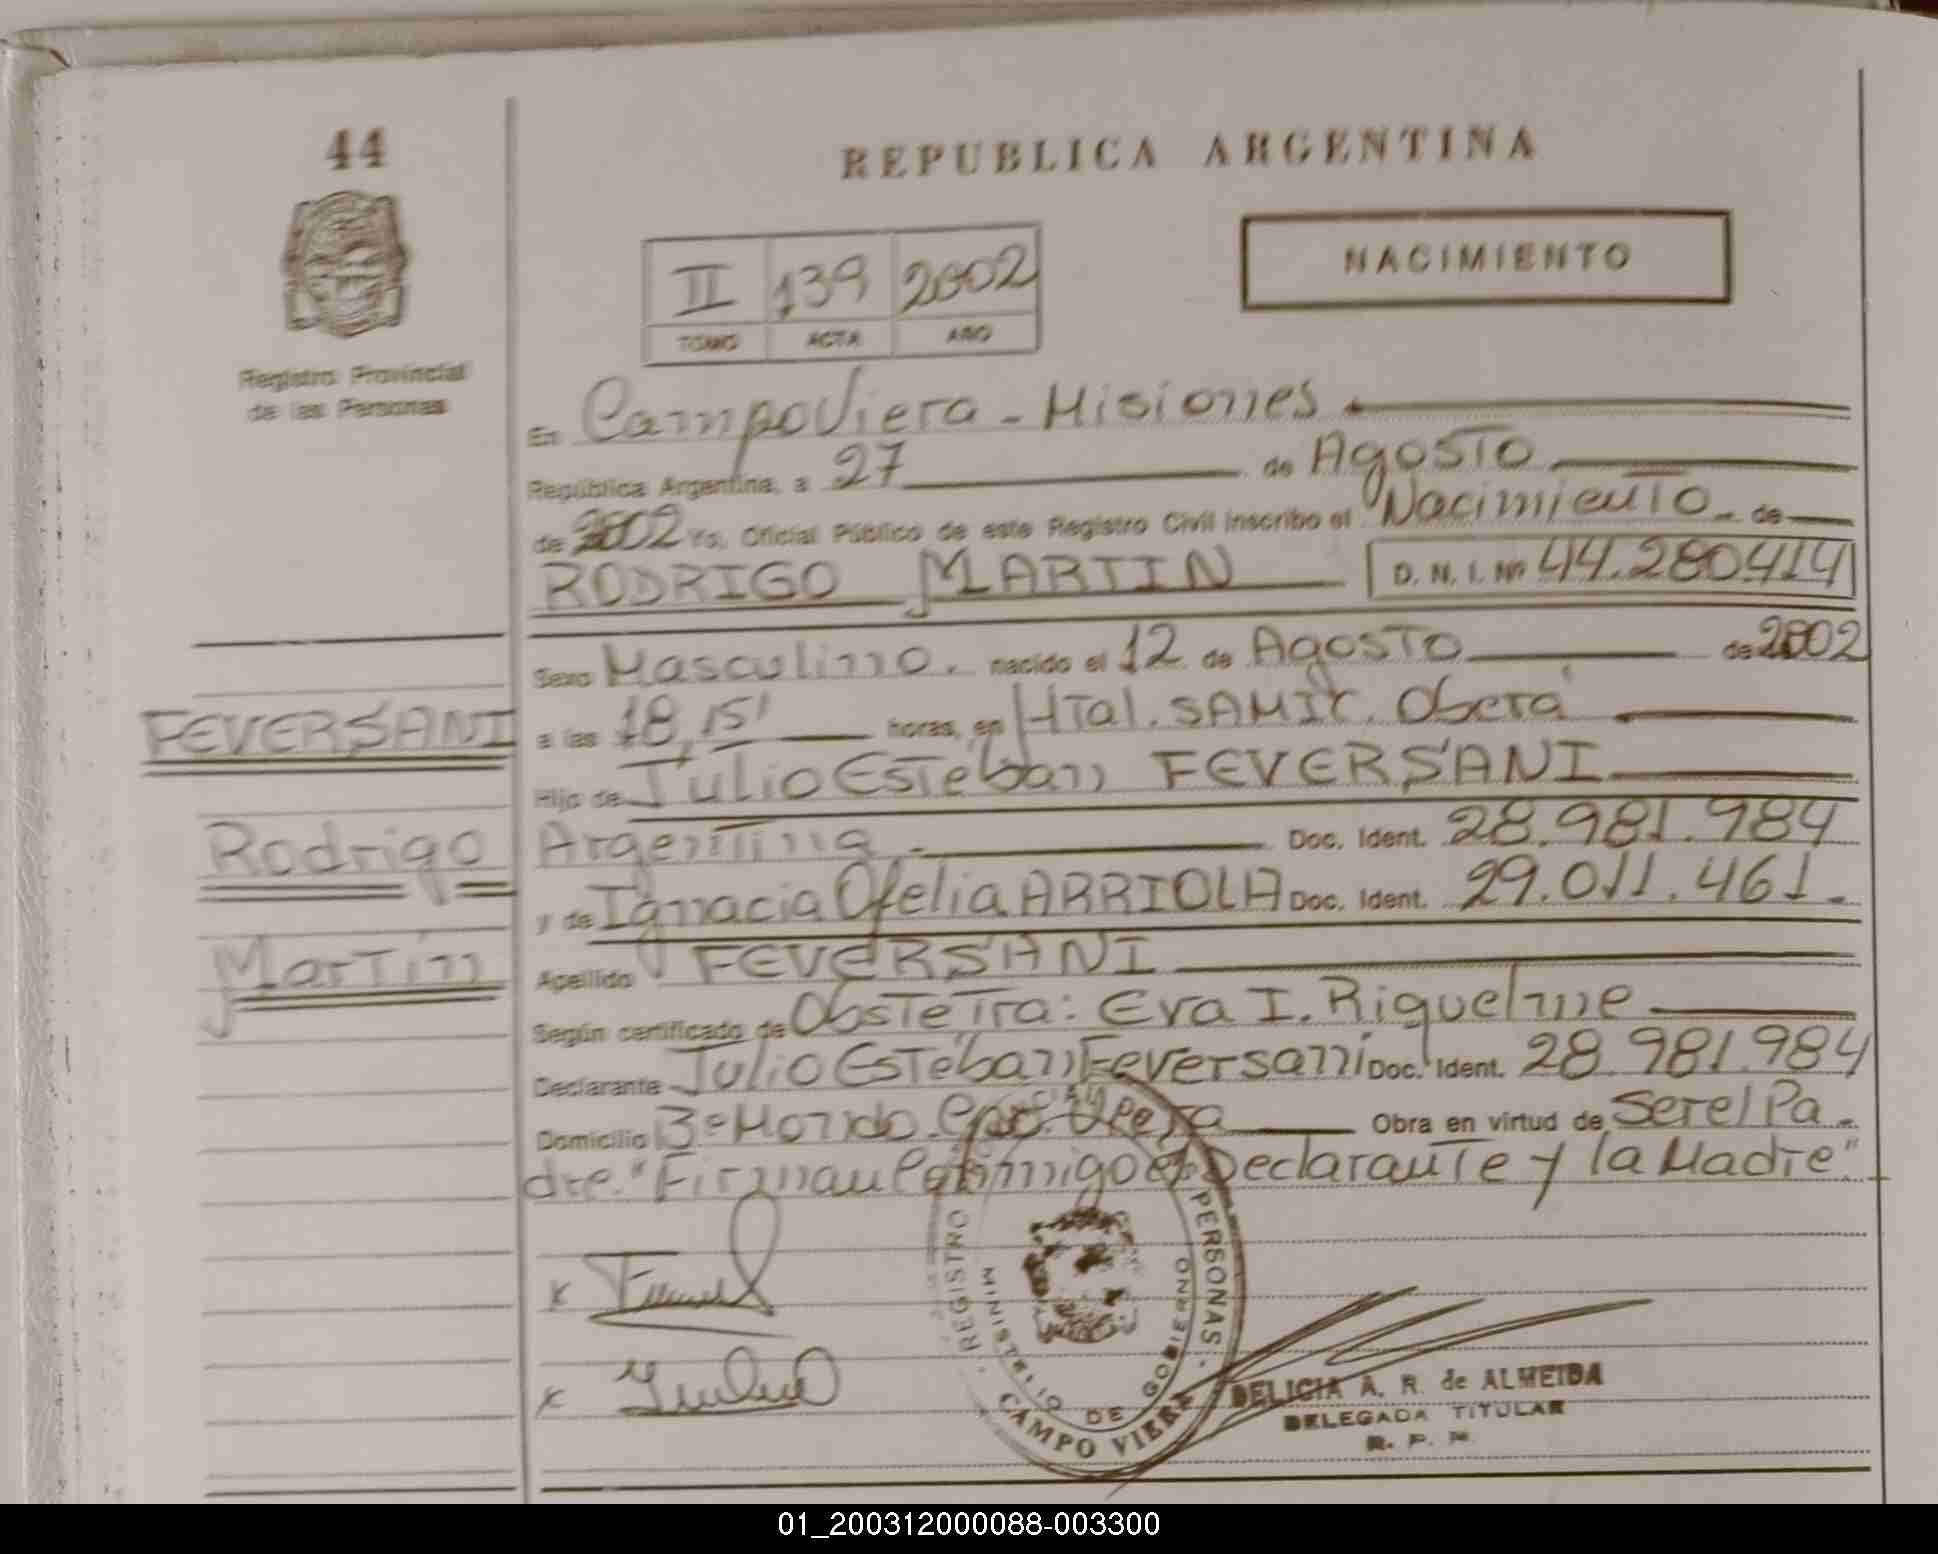 44
REPUBLICA ARGENTINA
NACIMIENTO
II 139 2002
TOMO ACTA AÑO
Registro Provincial
de las Personas
En CampoViera - Misiones
República Argentina, a 27 de Agosto
de 2002 Yo, Oficial Público de este Registro Civil inscribo el Nacimiento de
RODRIGO MARTIN D. N. I. Nº 44.280414
Sexo Masculino. nacido el 12 de Agosto de 2002
FEVERSANI
a las 18,15' horas, en Htal. SAMIC. Oberá
Hijo de Julio Esteban FEVERSANI
Rodrigo
Argentina Doc. Ident. 28.981.984
y de Ignacia Ofelia ARRIOLA Doc. Ident. 29.011.461.
Martin
Apellido FEVERSANI
Según certificado de Obstetra: Eva I. Riquelme
Declarante Julio Esteban Feversani Doc. Ident. 28.981.984
Domicilio Bº Mondo. Cpo. Viera Obra en virtud de Ser el Pa-
dre. "Firman Conmigo el Declarante y la Madre".
x
x
REGISTRO PERSONAS. CAMPO VIERA
MINISTERIO DE GOBIERNO
DELICIA A. R. de ALMEIDA
DELEGADA TITULAR
R. P. P.
01_200312000088-003300